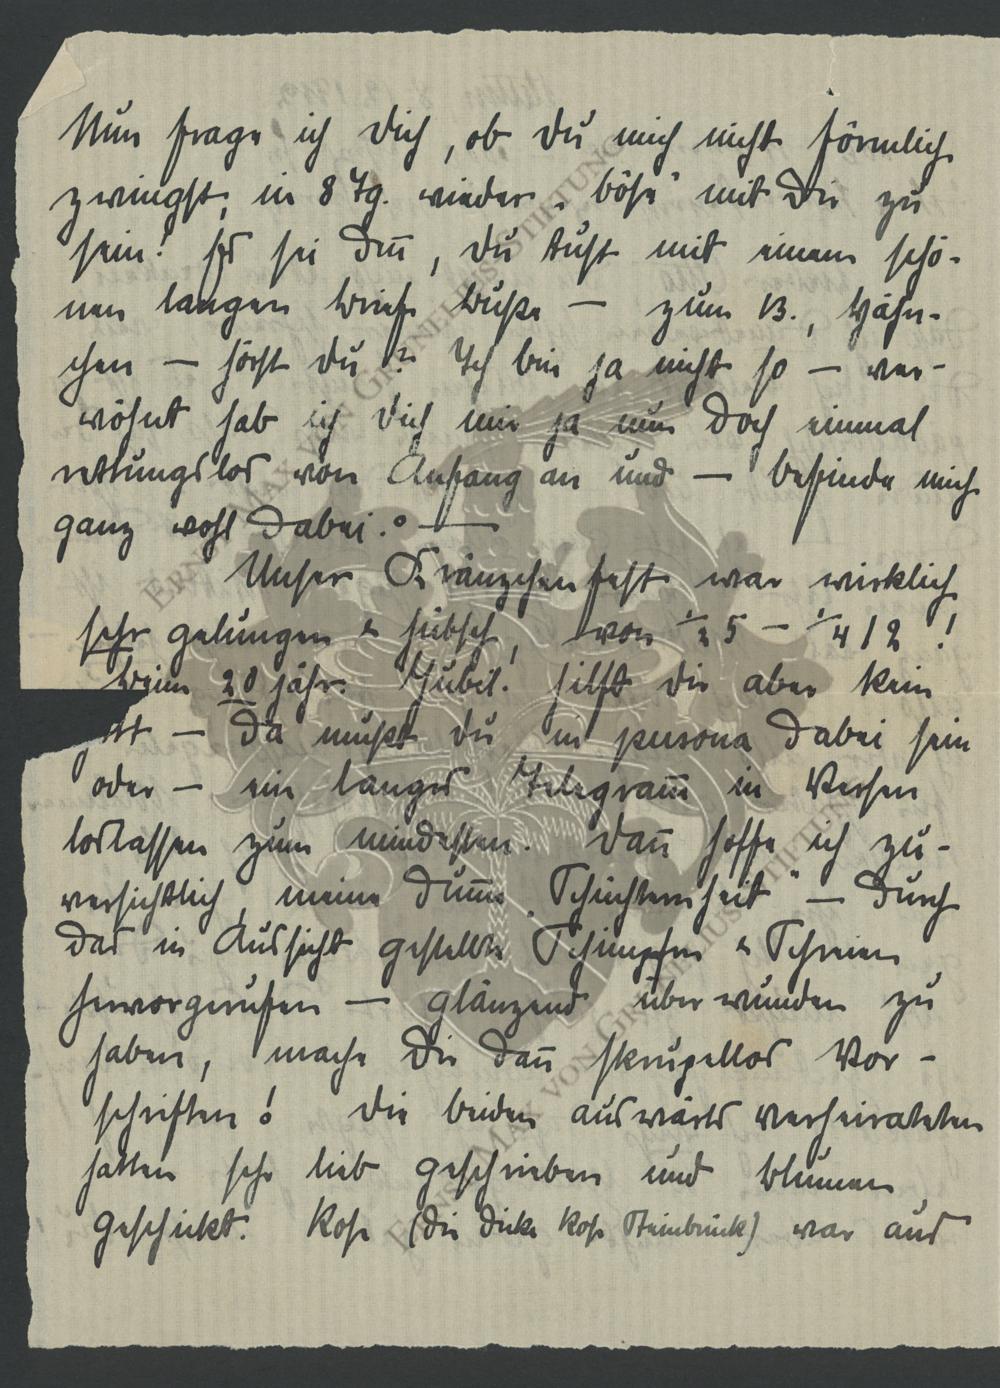 Nun frage ich Dich, ob Du mich nicht förmlich
zwingst, in 8 Tg. wieder „böse" mit Dir zu
sein! Es sei den̄, Du tust mit einem schö-
nen langen Briefe Buße — zum B., Hähn-
chen — hörst Du? Ich bin ja nicht so — ver-
wöhnt hab ich Dich mir ja nun doch einmal
rettungslos von Anfang an und — befinde mich
ganz wohl dabei. —
Unser Kränzchenfest war wirklich
sehr gelungen & hübsch, von ½5 – ¼12!
Beim 20 jähr. Jubil. hilft Dir aber kein
— da mußt Du in persona dabei sein
oder — ein langes Telegram̄ in Versen
loslassen zum mindesten. Dan̄ hoffe ich zu-
versichtlich, meine dum̄e „Schüchternheit" — durch
das in Aussicht gestellte Schimpfen & Schreien
hervorgerufen — glänzend überwunden zu
haben, mache Dir dan̄ skrupellos Vor-
schriften! Die beiden auswärts Verheirateten
hatten sehr lieb geschrieben und Blumen
geschickt. Rose (die dicke Rose Steinbrück) war aus
ERNST MAX VON GRUNELIUS-STIFTUNG
ERNST MAX VON GRUNELIUS-STIFTUNG